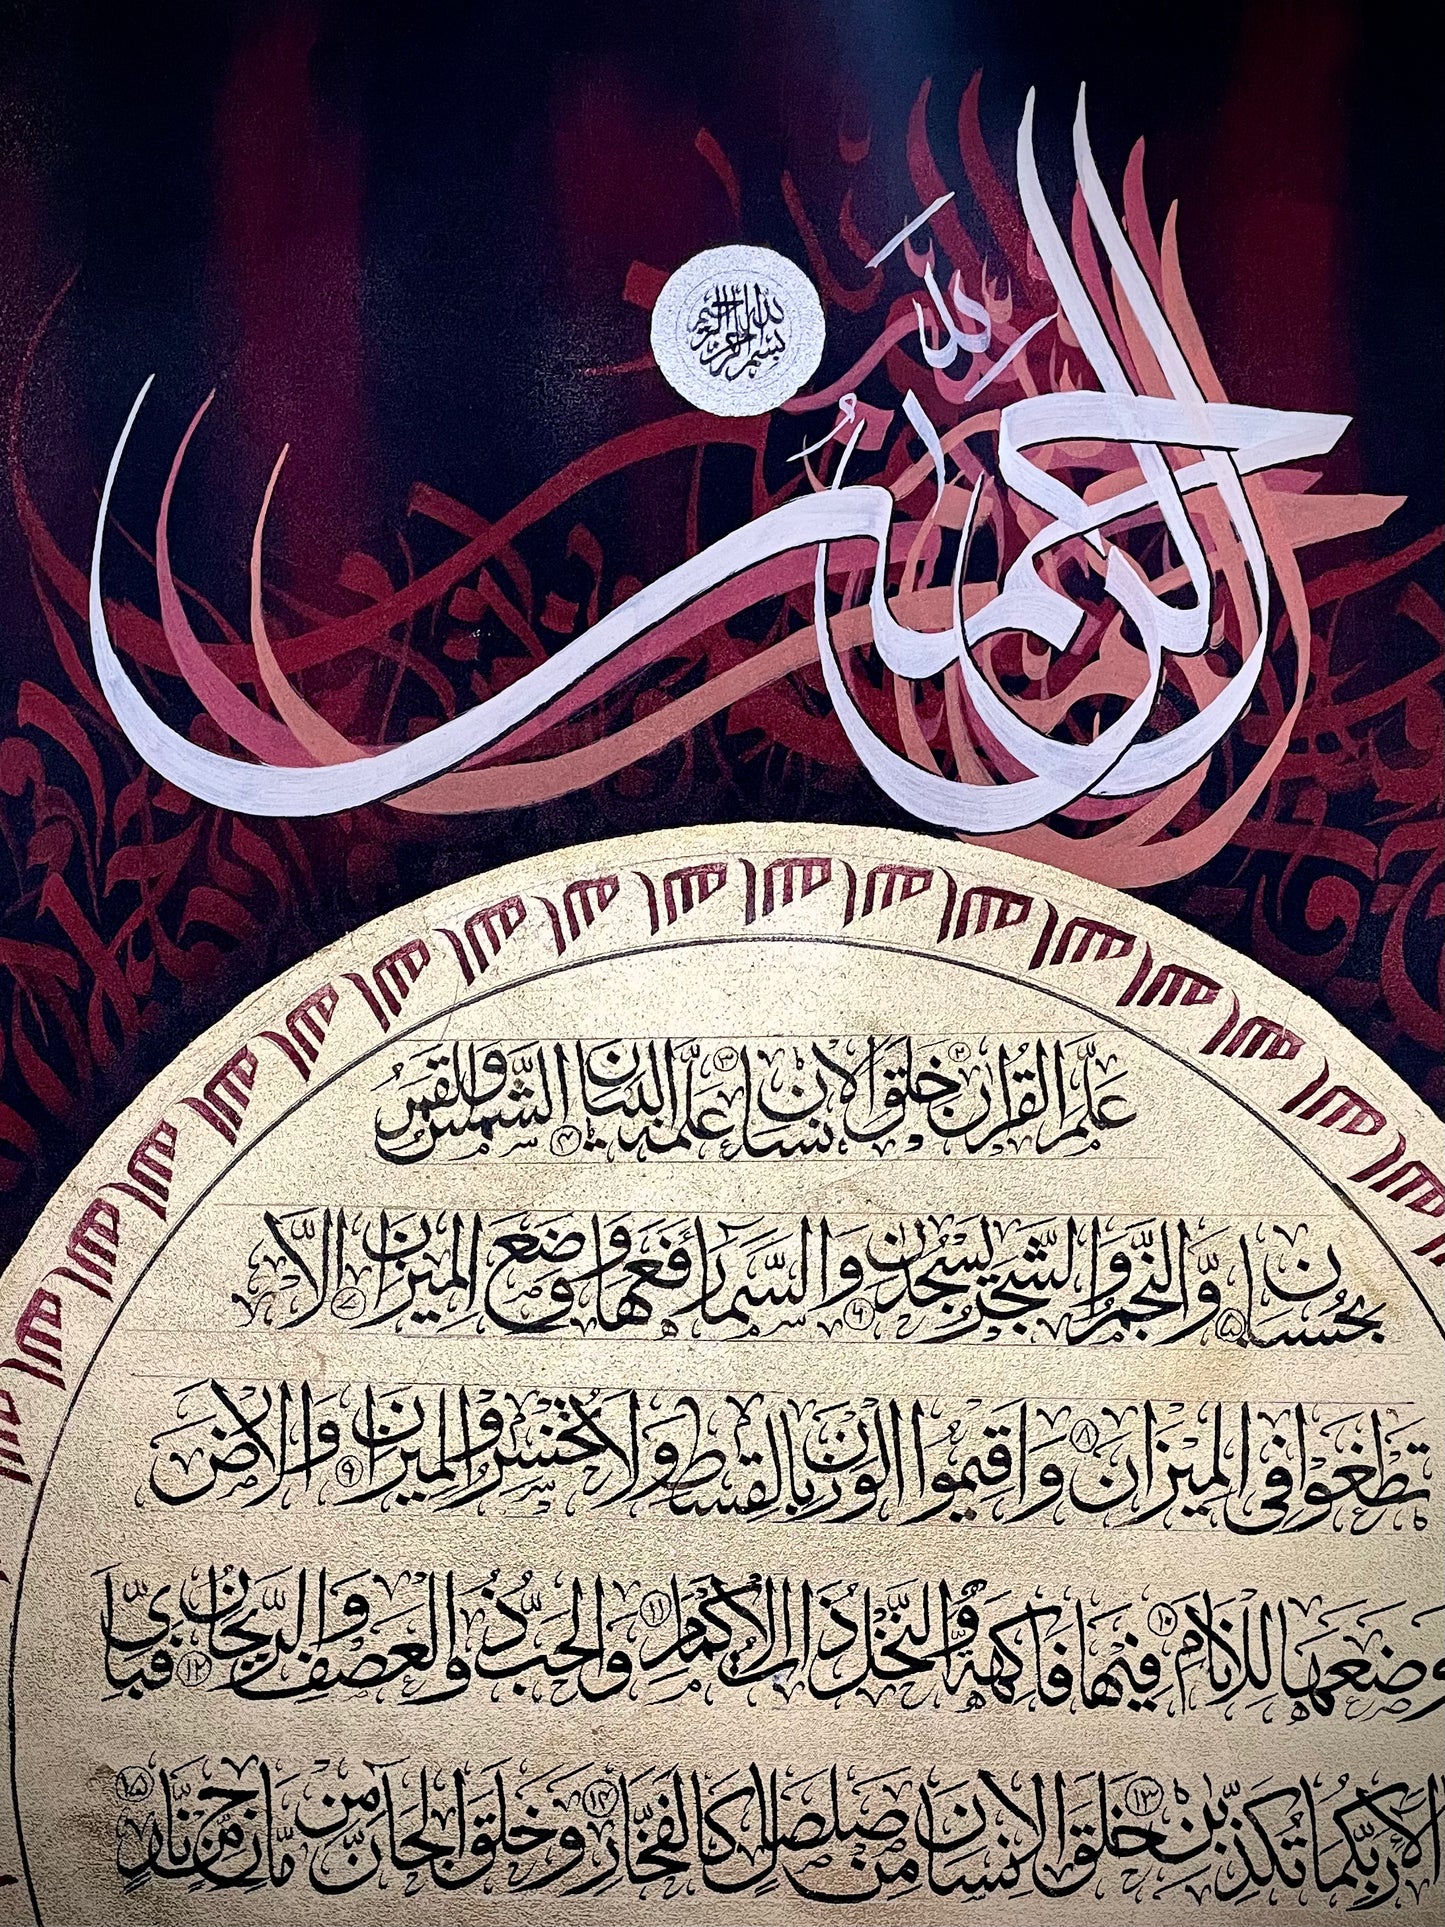 بسم الله الرحمن الرحيم
الرحمن
علم القران ٢ خلق الانسان ٣ علمه البيان ٤ الشمس والقمر
بحسبان ٥ والنجم والشجر يسجدن ٦ والسماء رفعها ووضع الميزان ٧ الا
تطغوا فى الميزان ٨ واقيموا الوزن بالقسط ولا تخسروا الميزان ٩ والارض
وضعها للانام ١٠ فيها فاكهة والنخل ذات الاكمام ١١ والحب ذو العصف والريحان ١٢ فباى
الاء ربكما تكذبن ١٣ خلق الانسان من صلصل كالفخار ١٤ وخلق الجان من مارج من نار ١٥